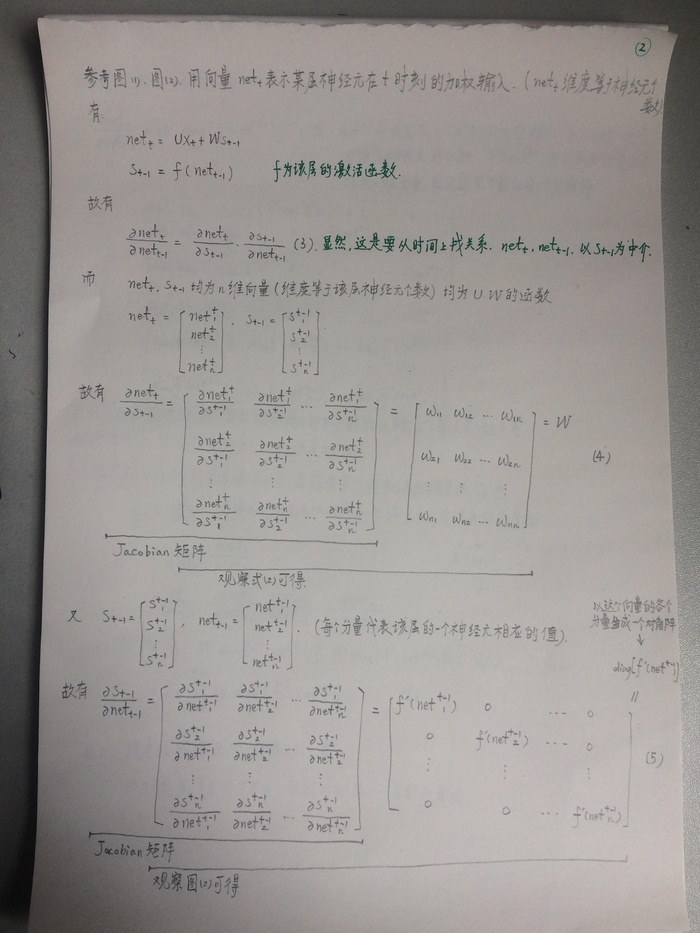 ②
参考图(1).图(2). 用向量 net_t 表示某层神经元在 t 时刻的加权输入. (net_t 维度等于神经元个数)
有.
net_t = Ux_t + Ws_{t-1}
s_{t-1} = f(net_{t-1}) f为该层的激活函数.
故有
∂net_t/∂net_{t-1} = ∂net_t/∂s_{t-1} · ∂s_{t-1}/∂net_{t-1} (3). 显然, 这是要从时间上找关系. net_t, net_{t-1}. 以 s_{t-1} 为中介.
而 net_t, s_{t-1} 均为 n 维向量 (维度等于该层神经元个数) 均为 U.W 的函数
net_t = [net_1^t net_2^t ⋮ net_n^t], s_{t-1} = [s_1^{t-1} s_2^{t-1} ⋮ s_n^{t-1}]
故有 ∂net_t/∂s_{t-1} = [∂net_1^t/∂s_1^{t-1} ∂net_1^t/∂s_2^{t-1} ⋯ ∂net_1^t/∂s_n^{t-1} = [w_11 w_12 ⋯ w_1n] = W
∂net_2^t/∂s_1^{t-1} ∂net_2^t/∂s_2^{t-1} ⋯ ∂net_2^t/∂s_n^{t-1} w_21 w_22 ⋯ w_2n (4)
⋮ ⋮ ⋮ ⋮ ⋮
∂net_n^t/∂s_1^{t-1} ∂net_n^t/∂s_2^{t-1} ⋯ ∂net_n^t/∂s_n^{t-1}] w_n1 w_n2 ⋯ w_nn
Jacobian 矩阵
观察式(2)可得
以这个向量的各个
分量组成一个对角阵
↓
又 s_{t-1} = [s_1^{t-1} s_2^{t-1} ⋮ s_n^{t-1}], net_{t-1} = [net_1^{t-1} net_2^{t-1} ⋮ net_n^{t-1}]. (每个分量代表该层的一个神经元相应的值).
diag[f'(net^{t-1})]
〃
故有 ∂s_{t-1}/∂net_{t-1} = [∂s_1^{t-1}/∂net_1^{t-1} ∂s_1^{t-1}/∂net_2^{t-1} ⋯ ∂s_1^{t-1}/∂net_n^{t-1} = [f'(net_1^{t-1}) 0 ⋯ 0
∂s_2^{t-1}/∂net_1^{t-1} ∂s_2^{t-1}/∂net_2^{t-1} ⋯ ∂s_2^{t-1}/∂net_n^{t-1} 0 f'(net_2^{t-1}) ⋯ 0 (5)
⋮ ⋮ ⋮ ⋮ ⋮ ⋮
∂s_n^{t-1}/∂net_1^{t-1} ∂s_n^{t-1}/∂net_2^{t-1} ⋯ ∂s_n^{t-1}/∂net_n^{t-1}] 0 0 ⋯ f'(net_n^{t-1})]
Jacobian 矩阵
观察图(2)可得